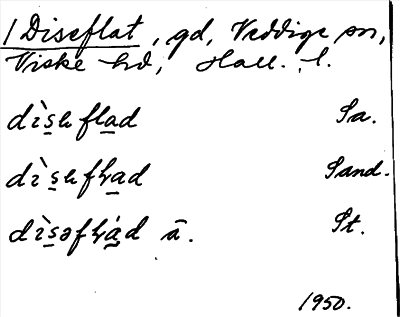 / Diseflat, gd, Veddige sn,
Viske hd, Hall. l.
dìsɐflad Sa.
dìsɐfꞎad Sand.
dìsəfꞎád ā. St.
1950.